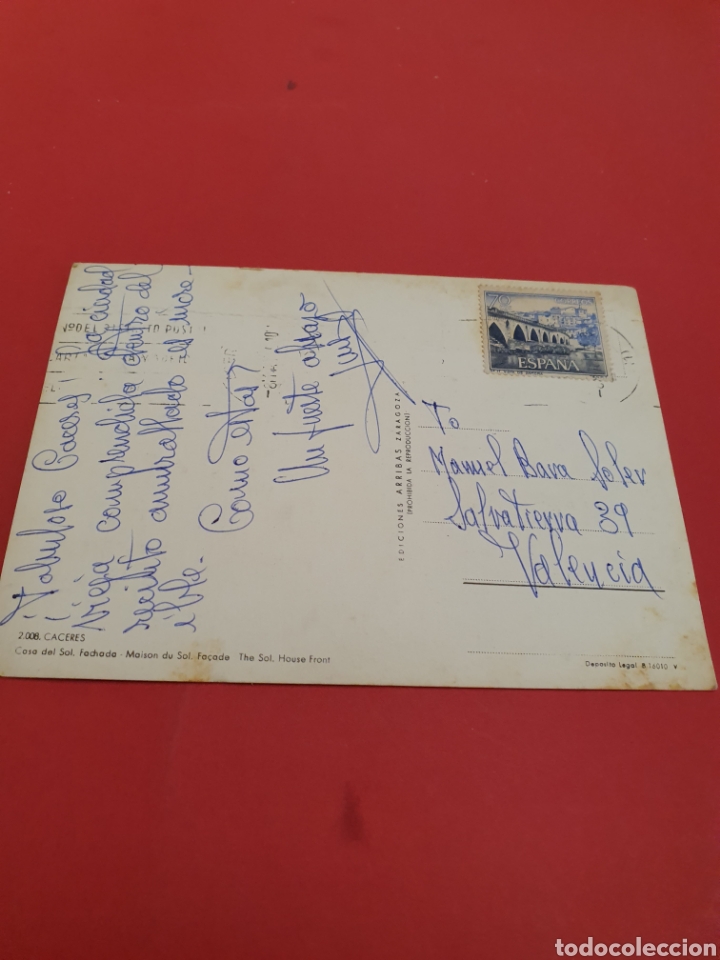 ¡Fabuloso Caceres! La ciudad
vieja comprendida dentro del
recinto amurallado es incre-
ible.
Como estas?
Un fuerte abrazo
Luis
EDICIONES ARRIBAS ZARAGOZA
(PROHIBIDA LA REPRODUCCION)
ESPAÑA
To
Manuel Bava Soler
Salvatierra 39
Valencia
2.008. CACERES
Casa del Sol. Fachada - Maison du Sol. Façade The Sol. House Front
Deposito Legal B.16010 V
todocoleccion